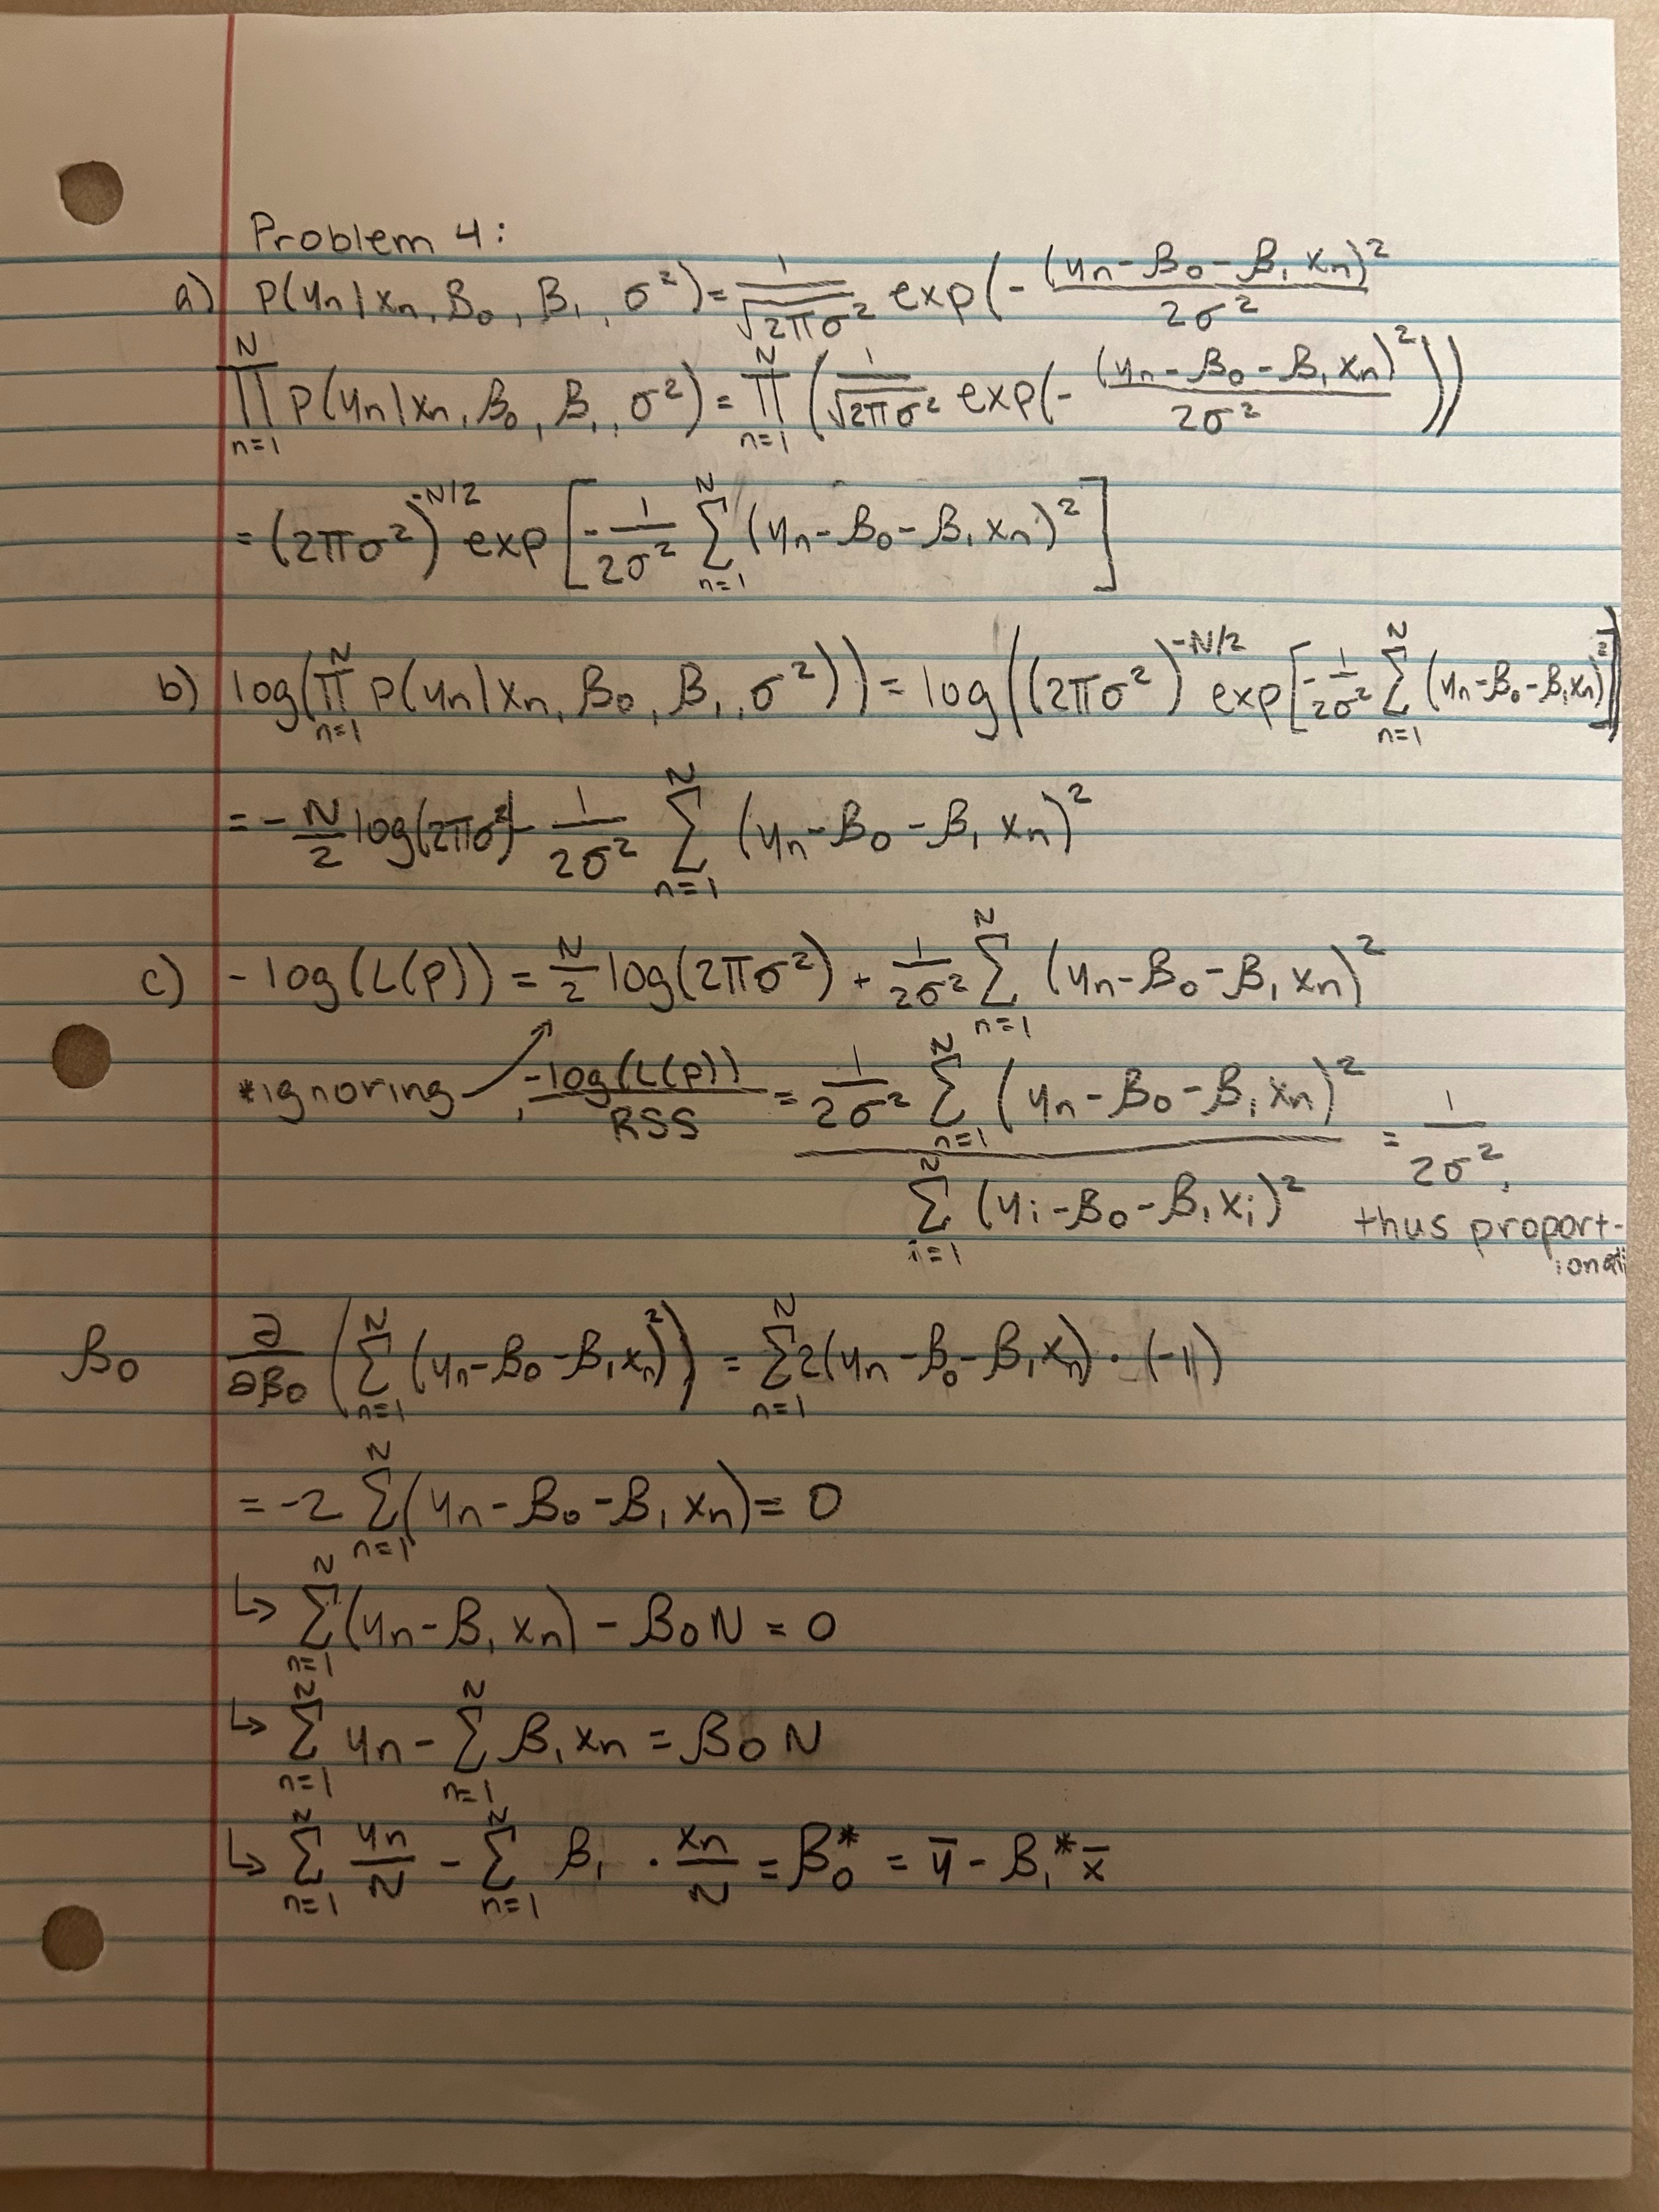 Problem 4:
a) P(yn|xn, β₀, β₁, σ²) = 1/√(2πσ²) exp(-(yn-β₀-β₁xn)²/2σ²
∏_{n=1}^{N} P(yn|xn, β₀, β₁, σ²) = ∏_{n=1}^{N} (1/√(2πσ²) exp(-(yn-β₀-β₁xn)²/2σ²))
= (2πσ²)^{-N/2} exp[-1/2σ² ∑_{n=1}^{N} (yn-β₀-β₁xn)²]
b) log(∏_{n=1}^{N} P(yn|xn, β₀, β₁, σ²)) = log((2πσ²)^{-N/2} exp[-1/2σ² ∑_{n=1}^{N} (yn-β₀-β₁xn)²])
= -N/2 log(2πσ²) - 1/2σ² ∑_{n=1}^{N} (yn-β₀-β₁xn)²
c) -log(L(P)) = N/2 log(2πσ²) + 1/2σ² ∑_{n=1}^{N} (yn-β₀-β₁xn)²
*ignoring ↗, -log(L(P))/RSS = 1/2σ² ∑_{n=1}^{N} (yn-β₀-β₁xn)² / ∑_{i=1}^{N} (yi-β₀-β₁xi)² = 1/2σ²,
thus proport-
β₀ ∂/∂β₀ (∑_{n=1}^{N} (yn-β₀-β₁xn)²) = ∑_{n=1}^{N} 2(yn-β₀-β₁xn)·(-1)
= -2 ∑_{n=1}^{N} (yn-β₀-β₁xn) = 0
↳ ∑_{n=1}^{N} (yn-β₁xn) - β₀N = 0
↳ ∑_{n=1}^{N} yn - ∑_{n=1}^{N} β₁xn = β₀N
↳ ∑_{n=1}^{N} yn/N - ∑_{n=1}^{N} β₁ · xn/N = β₀* = ȳ - β₁*x̄